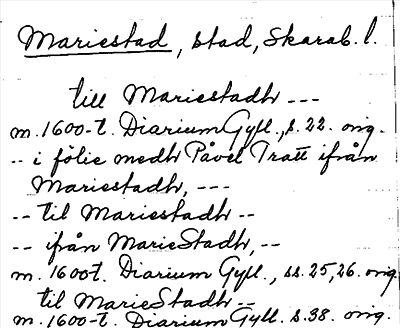 Mariestad, stad, Skarab. l.
till Mariestadh ---
m. 1600-t. Diarium Gyll., s. 22. orig.
-- i följe medh Påvel Tratt ifrån
Mariestadh, ---
-- til Mariestadh --
-- ifrån MarieStadh, --
m. 1600t. Diarium Gyll., ss. 25, 26. orig.
til MarieStadh --
m. 1600-t. Diarium Gyll. s. 38. orig.